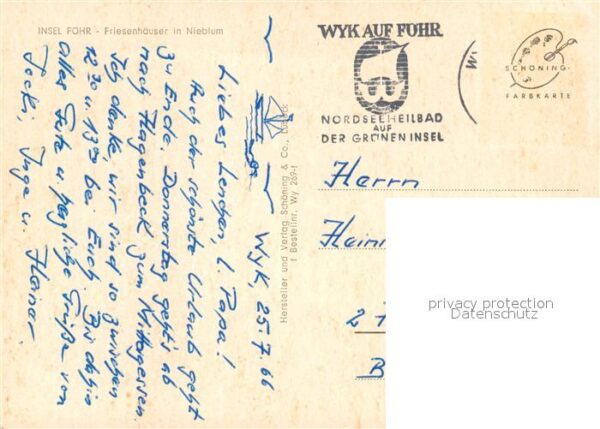 INSEL FÖHR - Friesenhäuser in Nieblum
Wyk, 25.7.66
Liebes Lenchen, l. Papa!
Auch der schönste Urlaub geht
zu Ende. Donnerstag geht's ab
nach Hagenbeck zum Mittagessen.
Ich denke, wir sind so zwischen
12³⁰ u. 13⁰⁰ bei Euch. Bis dahin
alles Gute u. herzliche Grüße von
Jocki, Inge u. Heiner.
Hersteller und Verlag Schöning & Co., Lübeck
Bestellnr. Wy 269
WYK AUF FÖHR
NORDSEEHEILBAD
AUF
DER GRÜNEN INSEL
SCHÖNING-
FARBKARTE
Herrn
Hein
2
privacy protection
Datenschutz